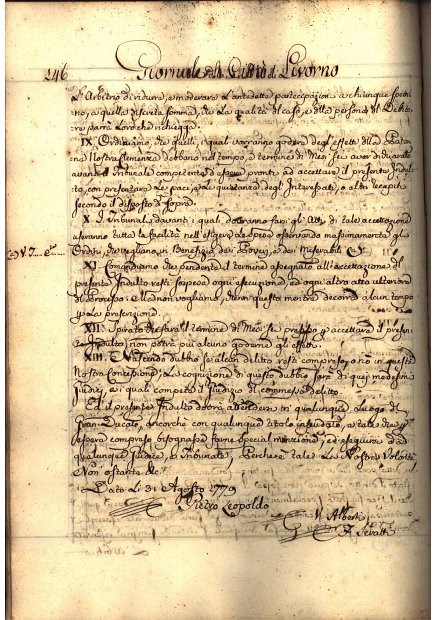 246 Giornale della Città di Livorno
L'Arbitrio di ridurre, e moderare l'antedette partecipazioni a chiunque spetti-
no, a quella discreta somma, che la qualità di caso, e della persona del Debito-
re parrà Loro che richiegga.
IX. Ordiniamo, che quelli, i quali vorranno godere degli effetti della
Nostra Clemenza debbano nel tempo, e termine di Mesi Sei aver dichiarato
avanti il Tribunale competente d'essere pronti ad accettare il presente Indul-
to, con presentare le paci, e le quietanze degl' Interessati, o altri recapiti
secondo il disposto di sopra.
X. I Tribunali davanti i quali dovranno farsi gli Atti di tale accettazione
useranno tutta la facilità nell' esigere le spese osservando massimamente gli
Ordini, che vegliano in Benefizio dei Poveri, e dei Miserabili
XI. Comandiamo che pendente il termine assegnato all' accettazione del
presente Indulto resti sospesa ogni esecuzione, ed ogni altro atto ulteriore
di Processo: E che non vogliamo, che in questo mentre decorra alcun tempo
per la prescrizione.
XII. Spirato che sarà il termine di Mesi Sei prefisso per accettare il presen-
te Indulto non potrà più alcuno goderne gli effetti.
XIII. Nascendo dubbio se alcun delitto resti compreso, o no in questa
Nostra Concessione, la cognizione di questo dubbio sarà di quei medesimi
Giudici, a i quali compete il Giudizio del commesso delitto.
Ed il presente Indulto dovrà attendersi in qualunque Luogo del
Gran-Ducato, ancorchè con qualunque titolo infeudato, e tale che per
esservi compreso bisognasse farne special menzione, ed eseguirsi da
qualunque Giudice, e Tribunale, Perchè tale è la Nostra Volontà
Non ostante &c.
Dato li 31 Agosto 1779
Pietro Leopoldo
V. Alberti